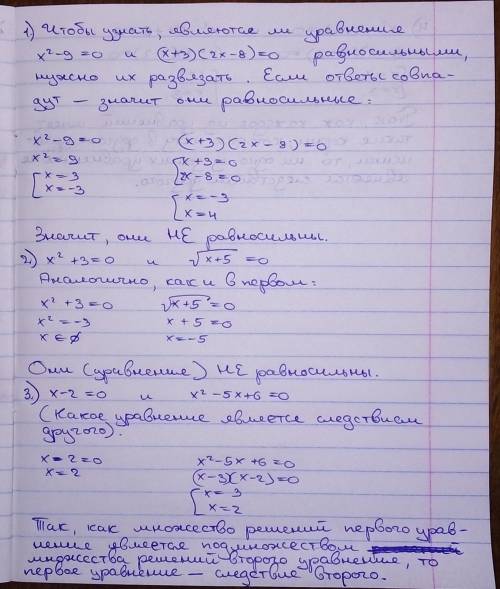 1) Чтобы узнать, являются ли уравнение
x²-9=0 и (x+3)(2x-8)=0 равносильными,
нужно их развязать. Если ответы совпа-
дут – значит они равносильные:
x²-9=0 (x+3)(2x-8)=0
x²=9 { x+3=0
[ x=3 2x-8=0
x=-3 [ x=-3
x=4
Значит, они НЕ равносильны.
2) x²+3=0 и √x+5 =0
Аналогично, как и в первом:
x²+3=0 √x+5=0
x²=-3 x+5=0
x∈∅ x=-5
Они (уравнение) НЕ равносильны.
3.) x-2=0 и x²-5x+6=0
(Какое уравнение является следствием
другого).
x-2=0 x²-5x+6=0
x=2 (x-3)(x-2)=0
[ x=3
x=2
Так, как множество решений первого урав-
нение является подмножеством
множества решений второго уравнение, то
первое уравнение – следствие второго.